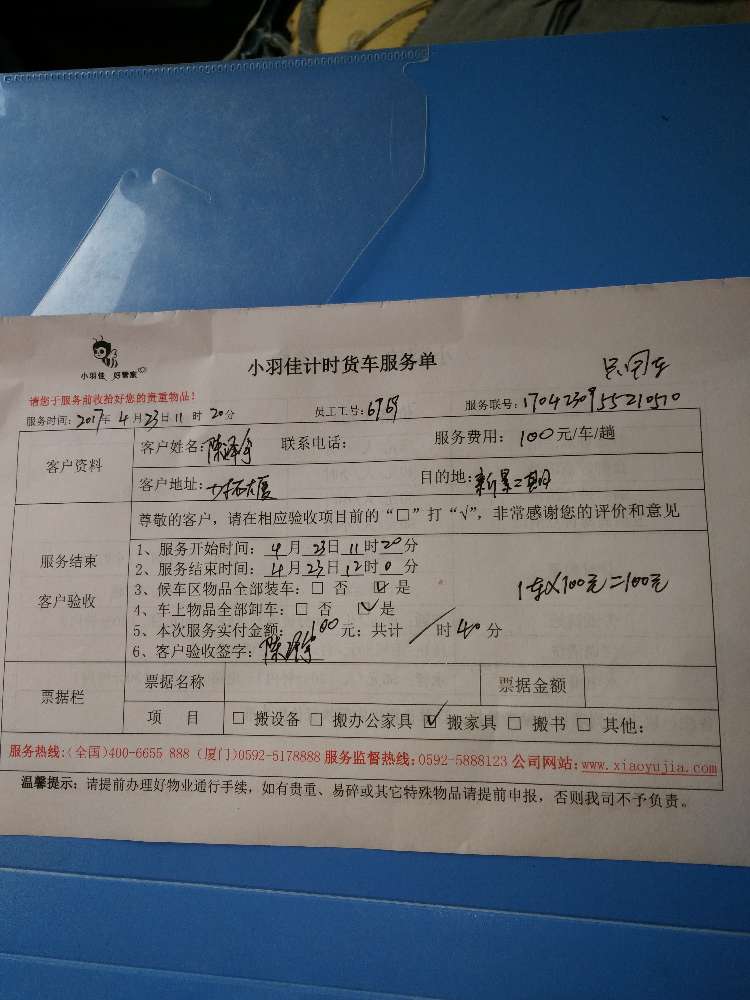 小羽佳 好管家
小羽佳计时货车服务单
请您于服务前收拾好您的贵重物品!
服务时间: 2017年 4月23日11时20分 员工工号: 6969 服务联号: 1704230955210510
客户资料
客户姓名: 陈泽 联系电话: 服务费用: 100元/车/趟
客户地址: 大厦 目的地: 新景二期
服务结束
客户验收
尊敬的客户,请在相应验收项目前的“□”打“√”,非常感谢您的评价和意见
1、服务开始时间: 4月23日11时20分
2、服务结束时间: 4月23日12时0分
3、候车区物品全部装车: □ 否 ☑ 是
4、车上物品全部卸车: □ 否 ☑ 是
1车X100元=100元
5、本次服务实付金额: 100元; 共计 / 时40分
6、客户验收签字: 陈泽
票据栏
票据名称 票据金额
项 目 □ 搬设备 □ 搬办公家具 ☑ 搬家具 □ 搬书 □ 其他:
服务热线:(全国)400-6655 888 (厦门)0592-5178888 服务监督热线:0592-5888123 公司网站:www.xiaoyujia.com
温馨提示: 请提前办理好物业通行手续,如有贵重、易碎或其它特殊物品请提前申报,否则我司不予负责。